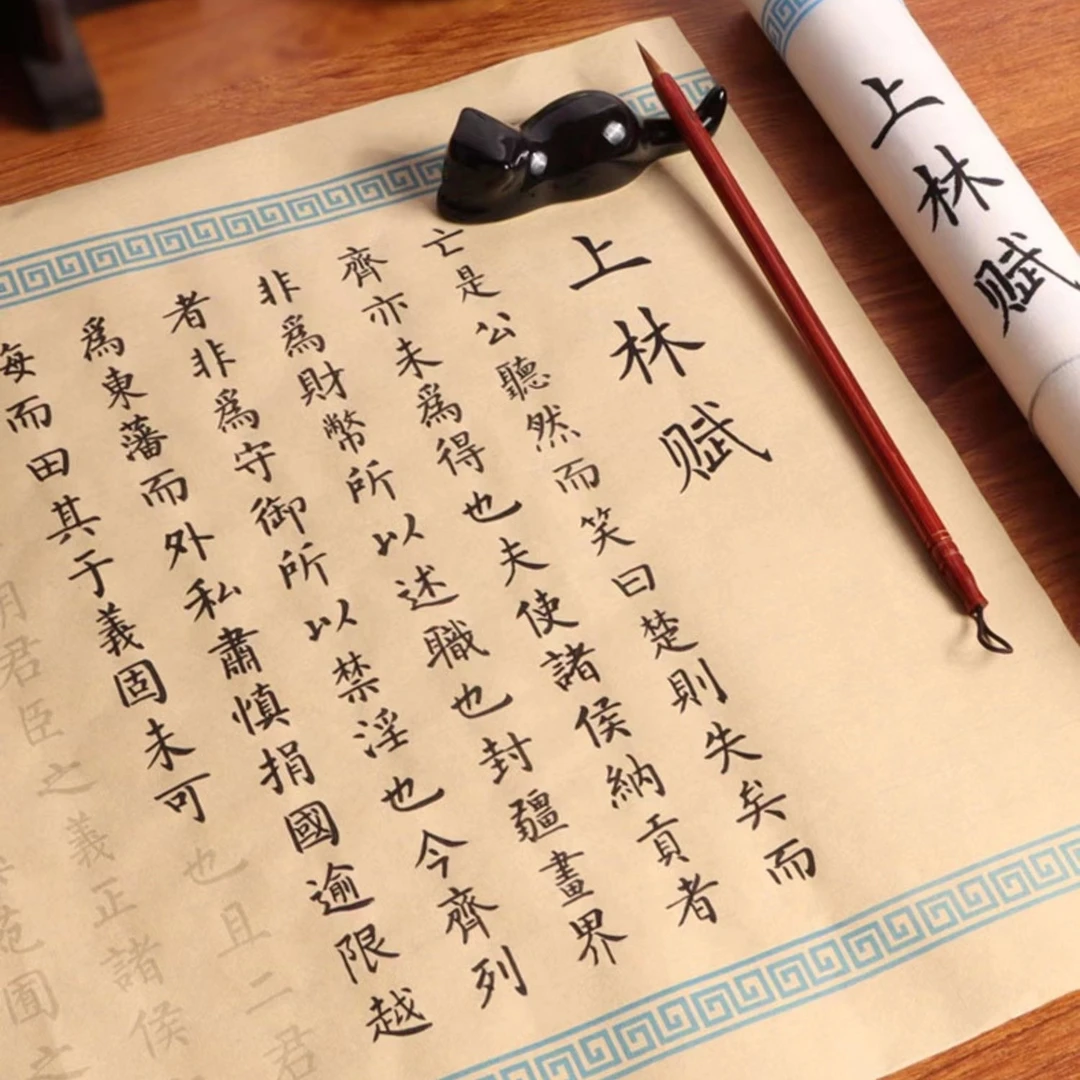 上林赋
亡是公聽然而笑曰楚則失矣而
齊亦未爲得也夫使諸侯納貢者
非爲財幣所以述職也封疆畫界
者非爲守御所以禁淫也今齊列
爲東藩而外私肅慎捐國逾限越
海而田其于義固未可也且二君
明君臣之義正諸侯
苑囿之
上林赋